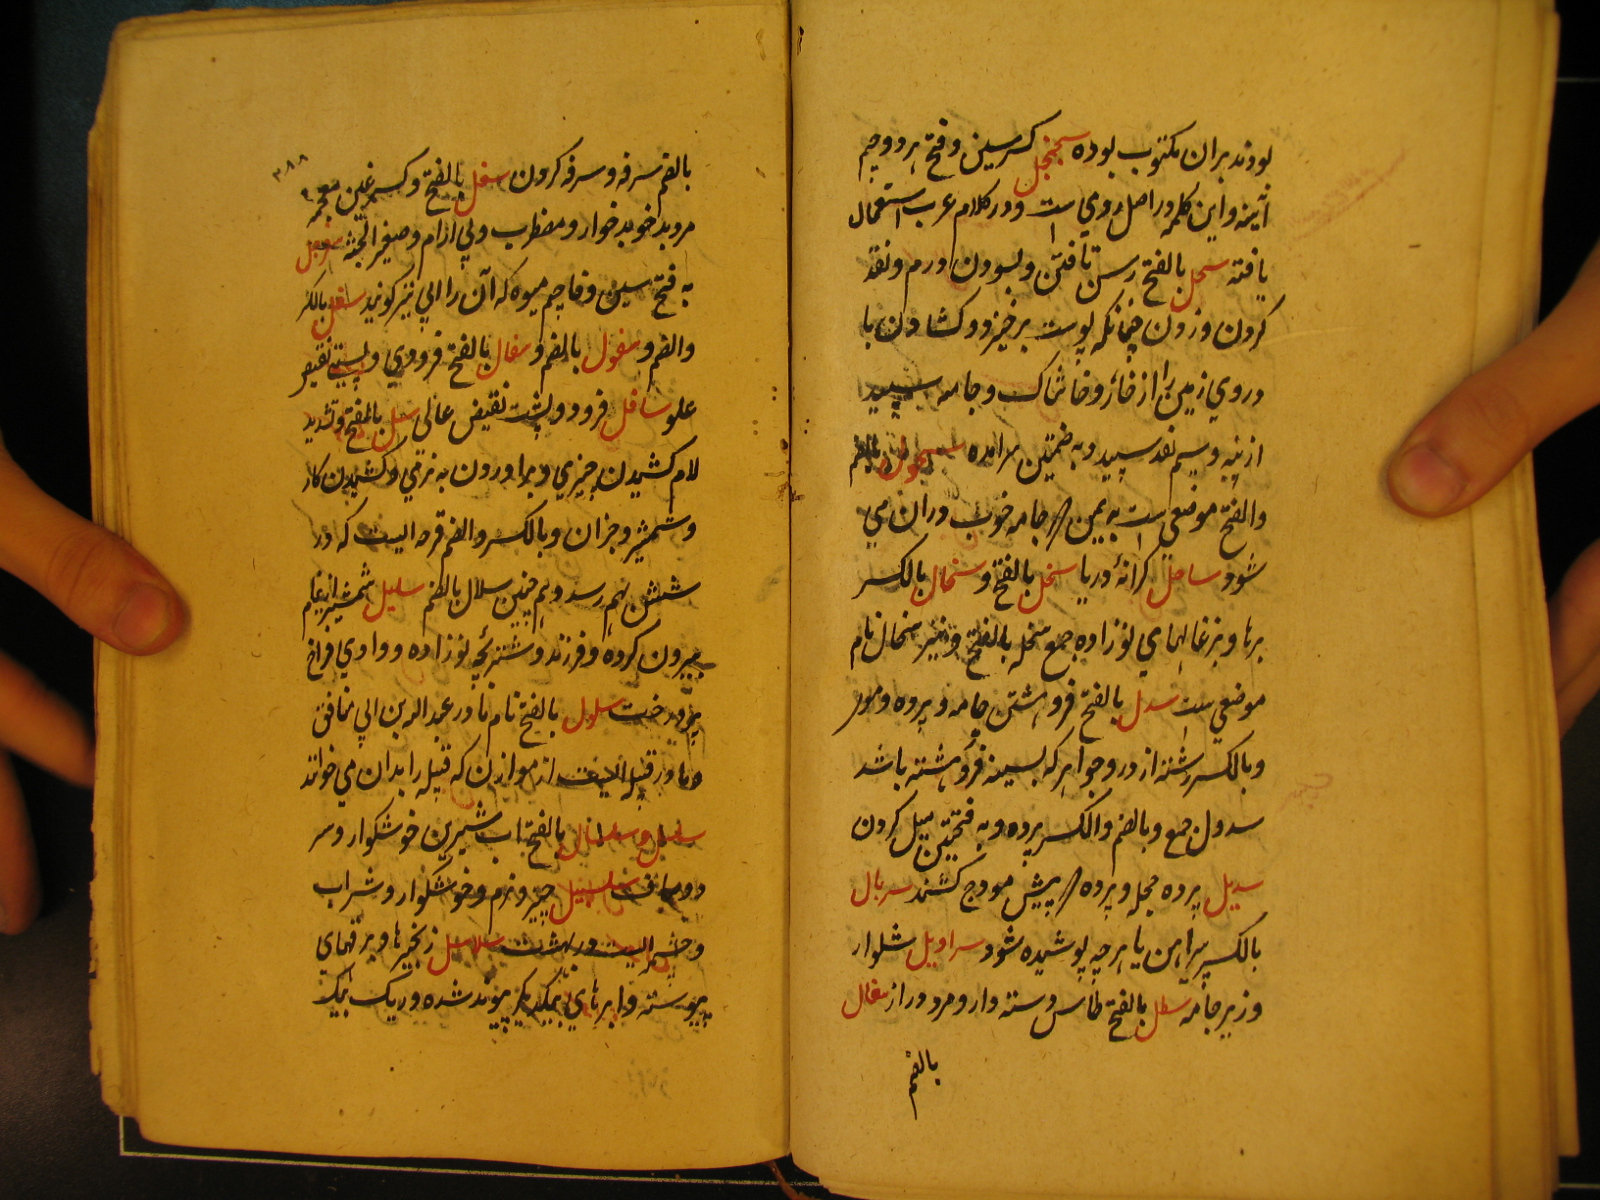 بودند بران مکتوب بوده سجنجل کسر سین و فتح هر دو جیم
آئینه و این کلمه در اصل رومی است و در کلام عرب استعمال
یافته سحل بالفتح رسن تافتن و بسودن درم و نقد
کردن و زدن چنانکه پوست برخیزد و کشادن با
در روی زمین را از خار و خاشاک و جامه سپید
از پنبه و سیم نقد سپید و به ضمتین مرامده سحول بالضم
والفتح موضعی ست به یمن که جامه خوب دران می
شود ساحل کرانهٔ دریا سخل بالفتح و سخال بالکسر
برها و بزغالهای نوزاده جمع سخله بالفتح و نیز سخال نام
موضعی ست سدل بالفتح فرو هشتن جامه و پرده و موی
و بالکسر رشته از در و جواهر که بسینه فرو هشته باشد
سدول جمع و بالضم والکسر پرده و به فتحتین میل کردن
سدیل پرده حجله و پرده که پیش هودج کشند سربال
بالکسر پیراهن یا هر چه پوشیده شود سراویل شلوار
و زیر جامه سطل بالفتح طاس دسته دار و مرد دراز سعال
بالضم
۳۸۸
بالضم سرفه و سرفه کردن سغل بالفتح و کسر غین معجمه
مرد بد خو بد خوار و مضطرب و بی ارام و صغیر الجثه سفرجل
به فتح سین و فا و جیم میوه که آن را ابی نیز کویند سفل بالکسر
والضم و سفول بالضم و سفال بالفتح فرودی و پستی نقیض
علو سافل فرود و پست نقیض عالی سل بالفتح و تشدید
لام کشیدن چیزی و براوردن به نرمی و کشیدن کارد
و شمشیر و جزان و بالکسر والضم قرحه ایست که در
شش بهم رسد و هم چنین سلال بالضم سلیل شمشیر از نیام
بیرون کرده و فرزند و شتر بچهٔ نوزاده و وادی فراخ
پر درخت سلول بالفتح نام مادر عبد الله بن ابی منافق
و مادر قبیله ایست از هوازن که قبیله را بدان می خوانند
سلسل و سلسال بالفتح اب شیرین خوشکوار و سر
سلسبیل چیز نرم و خوشکوار و شراب
و چشمه ایست در بهشت سلاسل زنجیرها و برقهای
پیوسته و ابرهای بیکدیکر پیوند شده و ریک